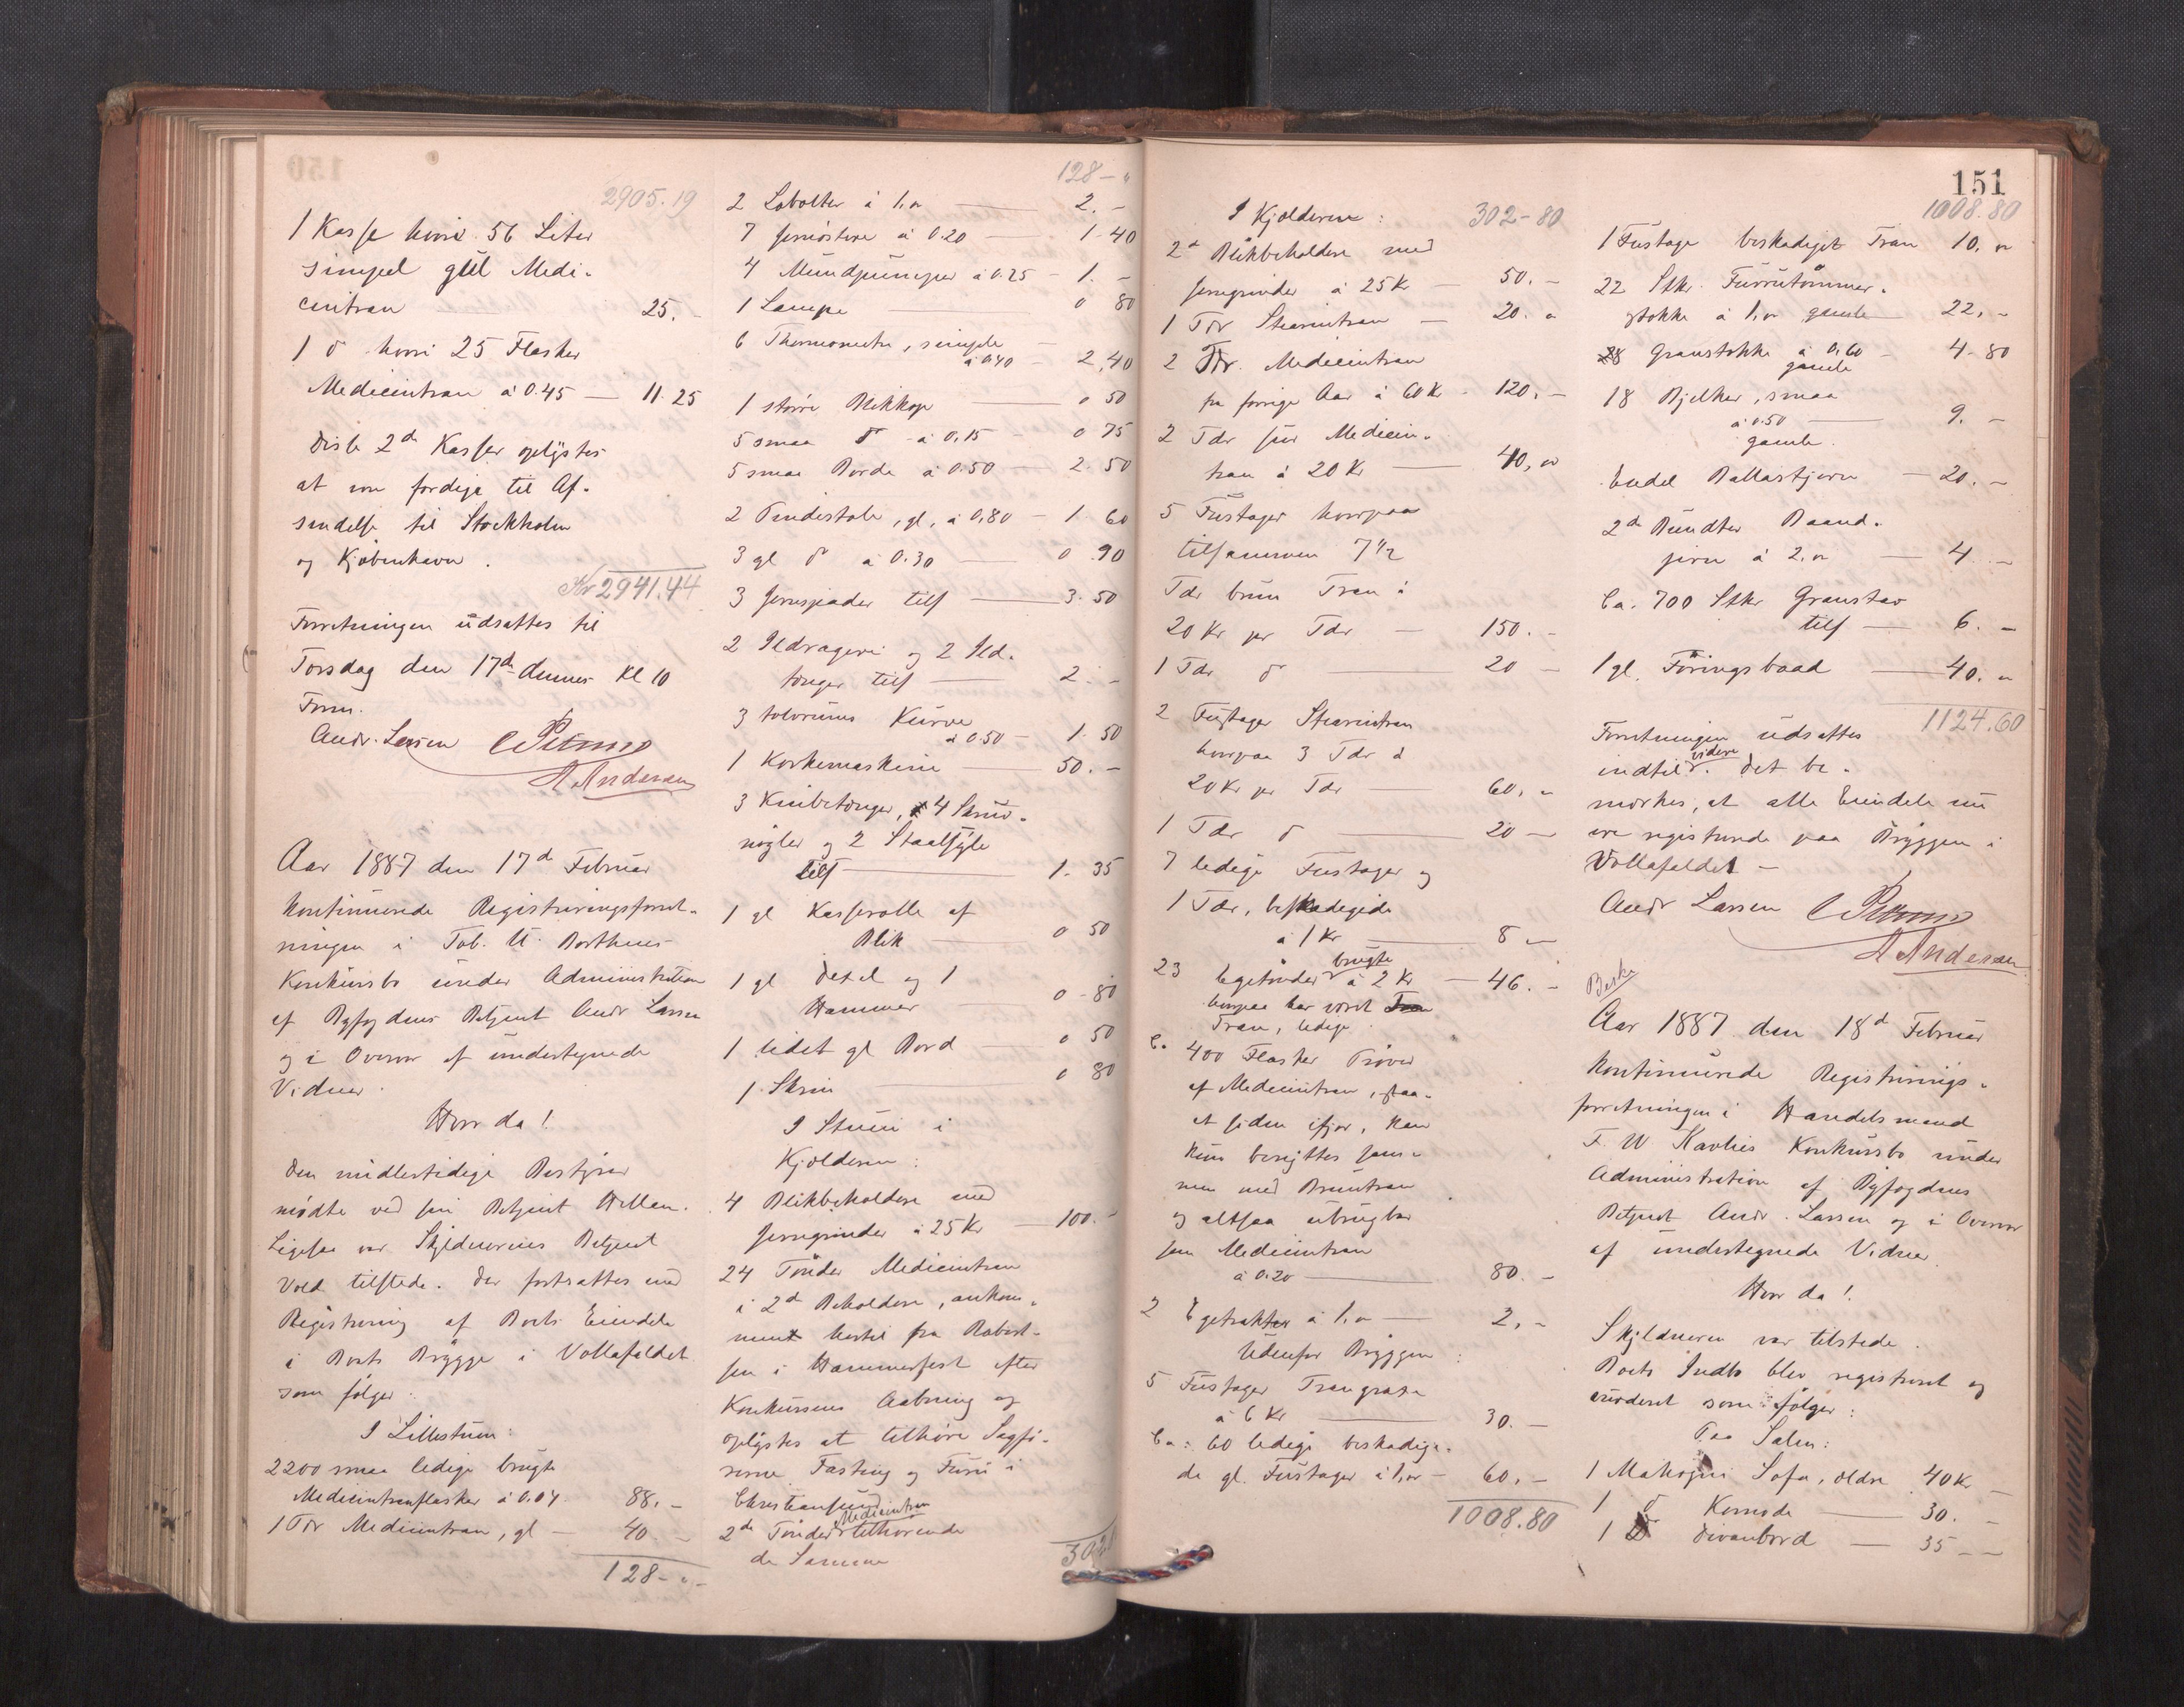 2905.19
1 Kasse hvori 56 Liter
simpel gul Medi-
cintran 25. -
1 do hvori 25 Flasker
Medicintran à 0.45 — 11.25
Disse 2de Kasser oplystes
at være færdige til Af-
sendelse til Stockholm
og Kjøbenhavn.
Kr 2941.44
Forretningen udsattes til
Torsdag den 17de dennes Kl 10
Form.
Andr. Larsen
A Andersen
Aar 1887 den 17d Februar
kontinuerede Registreringsforret-
ningen i Tob. U. Borthens
Konkursbo under Administration
af Byfogdens Betjent Andr Larsen
og i Overvær af undertegnede
Vidner.
Hvor da!
Den midlertidige Bestyrer
mødte ved sin Betjent Hellan.
Ligesaa var Skyldnerens Betjent
Vold tilstede. Der fortsattes med
Registrering af Boets Eiendele
i Boets Brygge i Vollafaldet
som følger:
I Lillestuen:
2200 smaa ledige brugte
Medicintranflasker à 0.04. 88. -
1 Tdr Medicintran, gl — 40. -
128 - " -
128 - "
2 Lobolter à 1. " — 2. -
7 Jernøstere à 0.20 — 1.40
4 Mundpumper à 0.25 - 1. -
1 Lampe — 0 80
6 Thermometre, simple
à 0.40 - 2,40
1 større Blikkop — 0 50
5 smaa do à 0,15 - 0 75
5 smaa Borde à 0.50 — 2.50
2 Pindestole, gl, à 0,80 - 1.60
3 gl do à 0.30 — 0.90
3 Jernspader tils — 3.50
2 Ildragere og 2 Ild-
tænger tils — 2. -
3 toørums Kurve
à 0.50 — 1.50
1 Korkemaskine — 50. -
3 Knibetænger, 4 Skrue-
nøgler og 2 Staalsyle
tils — 1.35
1 gl Kasserolle af
Blik — 0 50
1 gl Dexel og 1
Hammer — 0 - 80
1 lidet gl Bord — 0 50
1 Skrin — 0 80
I Stuen i
Kjælderen:
4 Blikbeholdere med
Jerngrinder à 25 Kr — 100. -
24 Tønder Medicintran
i 2de Beholdere, ankom-
ment hertil fra Robert-
sen i Hammerfest efter
Konkursens Aabning og
oplystes at tilhøre Sagfø-
rerne Fasting og Furu i
Christiansund
2de Tønder Medicintran tilhørende
de Samme
302
I Kjælderen: 302 - 80
2de Blikbeholdere med
Jerngrinder à 25 Kr — 50. -
1 Tdr Stearintran — 20. "
2 Tdr. Medicintran
fra forrige Aar à 60 Kr - 120. -
2 Tdr sur Medicin-
tran à 20 Kr — 40, "
5 Fustager hvorpaa
tilsammen 7 1/2
Tdr brun Tran à
20 Kr pr Tdr — 150. -
1 Tdr do — 20 -
2 Fustager Stearintran
hvorpaa 3 Tdr à
20 Kr pr Tdr — 60. "
1 Tdr do — 20 -
7 ledige Fustager og
1 Tdr, beskadigede
à 1 Kr — 8 "
23 Egetønder brugte à 2 Kr — 46. -
hvorpaa har været
Tran, ledige.
Ca 400 Flasker Prøver
af Medicintran, staa-
et siden ifjor, kan
kun benyttes sam-
men med Bruntran
og altsaa ubrugbar
som Medicintran
à 0.20 — 80. -
2 Egetrakter à 1. " — 2. -
Udenfor Bryggen:
5 Fustager Trangraxe
à 6 Kr — 30. -
Ca: 60 ledige beskadige-
de gl. Fustager à 1, " — 60. -
1008.80
151
1008.80
1 Fustage beskadiget Tran 10. "
22 Stkr. Furrutømmer-
stokke à 1. " gamle 22. -
8 Granstokke à 0,60 - 4.80
gamle
18 Bjelker, smaa
à 0.50 — 9. -
gamle.
Endel Ballastjern — 20. -
2de Bundter Baand-
jern à 2. " — 4. -
Ca. 700 Stkr Granstav
tils — 6. -
1 gl. Føringsbaad — 40. "
1124.60
Forretningen udsattes
indtil videre. Det be-
mærkes, at alle Eiendele nu
ere registrerede paa Bryggen i
Vollafaldet —
Andr Larsen
A Andersen
Aar 1887 den 18d Februar
kontinuerede Registrerings-
forretningen i Handelsmand
F. W Kavlies Konkursbo under
Administration af Byfogdens
Betjent Andr. Larsen og i Overvær
af undertegnede Vidner
Hvor da!
Skyldneren var tilstede.
Boets Indbo blev registreret og
vurderet som følger:
Paa Salen:
1 Mahogni Sofa, ældre 40 Kr -
1 do Komode — 30. -
1 Divanbord — 35 - -